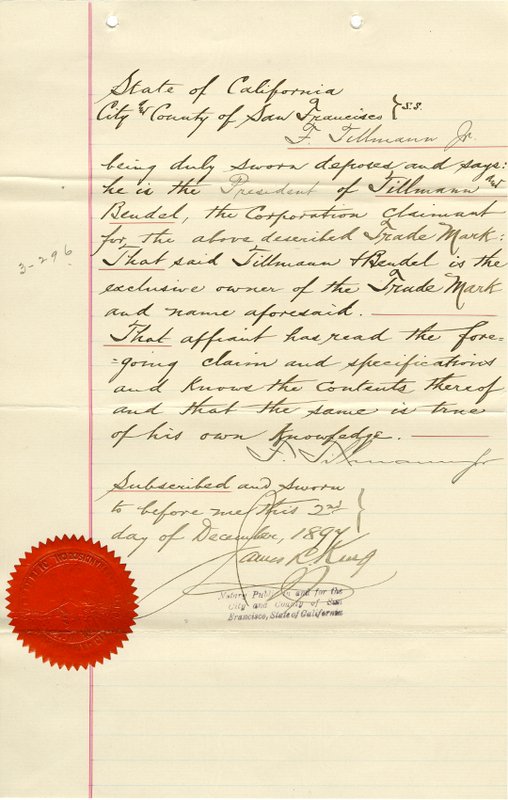 State of California
City & County of San Francisco } s.s.
F. Tillmann Jr.
being duly sworn deposes and says:
he is the President of Tillmann &
Bendel, the Corporation claimant
for the above described Trade Mark:
That said Tillmann & Bendel is the
exclusive owner of the Trade Mark
and name aforesaid.
3-296
That affiant has read the fore-
-going claim and specifications
and knows the contents thereof
and that the same is true
of his own knowledge.
F. Tillmann Jr
Subscribed and sworn
to before me this 2nd }
day of December, 1897
James L. King
Notary Public in and for the
City and County of San
Francisco, State of California